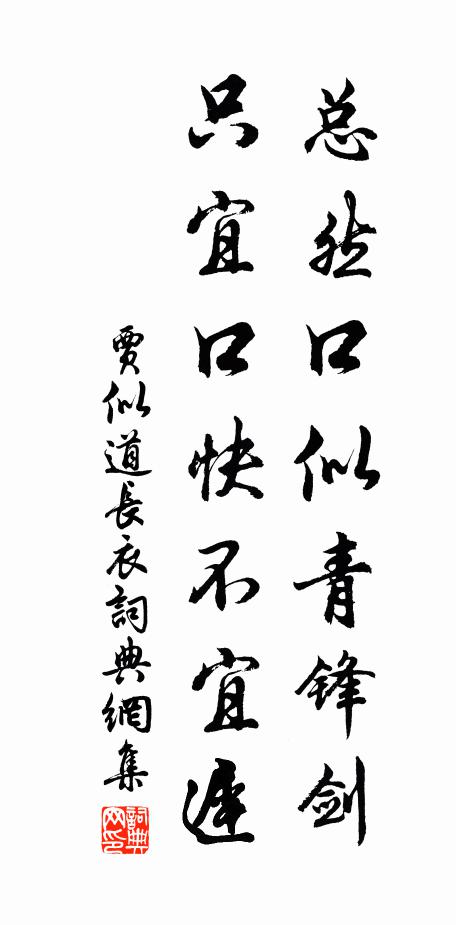 总然口似青锋剑
只宜口快不宜遲
賈似道長衣詞典網集
詞典网印